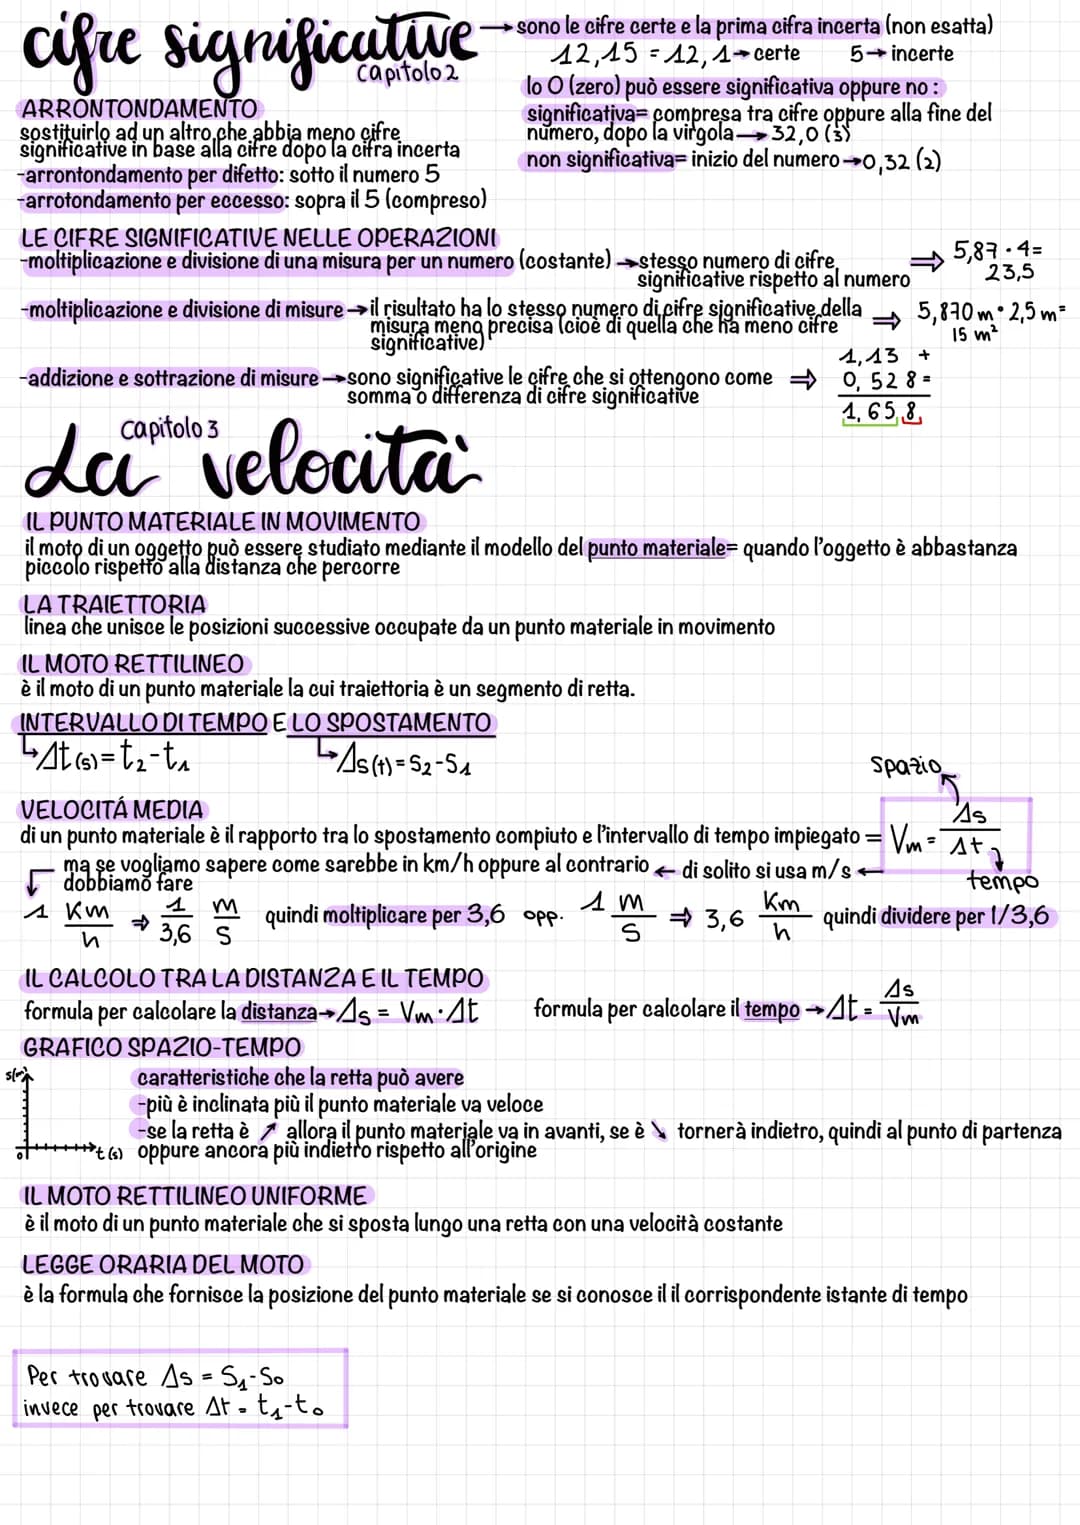 cifre significative
Capitolo 2
→ sono le cifre certe e la prima cifra incerta (non esatta)
12,15 = 12,1 → certe 5 → incerte
lo 0 (zero) può essere significativa oppure no :
significativa= compresa tra cifre oppure alla fine del
numero, dopo la virgola → 32,0 (3)
non significativa= inizio del numero → 0,32 (2)
ARRONTONDAMENTO
sostituirlo ad un altro che abbia meno cifre
significative in base alla cifre dopo la cifra incerta
-arrontondamento per difetto: sotto il numero 5
-arrotondamento per eccesso: sopra il 5 (compreso)
LE CIFRE SIGNIFICATIVE NELLE OPERAZIONI
-moltiplicazione e divisione di una misura per un numero (costante) → stesso numero di cifre
significative rispetto al numero
⇒ 5,87 · 4=
23,5
-moltiplicazione e divisione di misure → il risultato ha lo stesso numero di cifre significative della
misura meno precisa (cioè di quella che ha meno cifre
significative)
⇒ 5,870 m · 2,5 m=
15 m²
-addizione e sottrazione di misure → sono significative le cifre che si ottengono come
somma o differenza di cifre significative
⇒ 1,13 +
0,528 =
1,658
Capitolo 3
La velocità
IL PUNTO MATERIALE IN MOVIMENTO
il moto di un oggetto può essere studiato mediante il modello del punto materiale= quando l'oggetto è abbastanza
piccolo rispetto alla distanza che percorre
LA TRAIETTORIA
linea che unisce le posizioni successive occupate da un punto materiale in movimento
IL MOTO RETTILINEO
è il moto di un punto materiale la cui traiettoria è un segmento di retta.
INTERVALLO DI TEMPO E LO SPOSTAMENTO
↳ Δt(s)=t₂-t₁ ↳ Δs(t)=S₂-S₁
VELOCITÁ MEDIA
di un punto materiale è il rapporto tra lo spostamento compiuto e l'intervallo di tempo impiegato = Vm = Δs/Δt
spazio
tempo
ma se vogliamo sapere come sarebbe in km/h oppure al contrario ← di solito si usa m/s ←
dobbiamo fare
1 Km/h ⇒ 1/3,6 m/s quindi moltiplicare per 3,6 opp. 1 m/s ⇒ 3,6 Km/h quindi dividere per 1/3,6
IL CALCOLO TRA LA DISTANZA E IL TEMPO
formula per calcolare la distanza → Δs = Vm · Δt formula per calcolare il tempo → Δt = Δs/Vm
GRAFICO SPAZIO-TEMPO
s(m)
0
t(s)
caratteristiche che la retta può avere
-più è inclinata più il punto materiale va veloce
-se la retta è ↗ allora il punto materiale va in avanti, se è ↘ tornerà indietro, quindi al punto di partenza
oppure ancora più indietro rispetto all'origine
IL MOTO RETTILINEO UNIFORME
è il moto di un punto materiale che si sposta lungo una retta con una velocità costante
LEGGE ORARIA DEL MOTO
è la formula che fornisce la posizione del punto materiale se si conosce il il corrispondente istante di tempo
Per trovare Δs = S₁-S₀
invece per trovare Δt = t₁-t₀